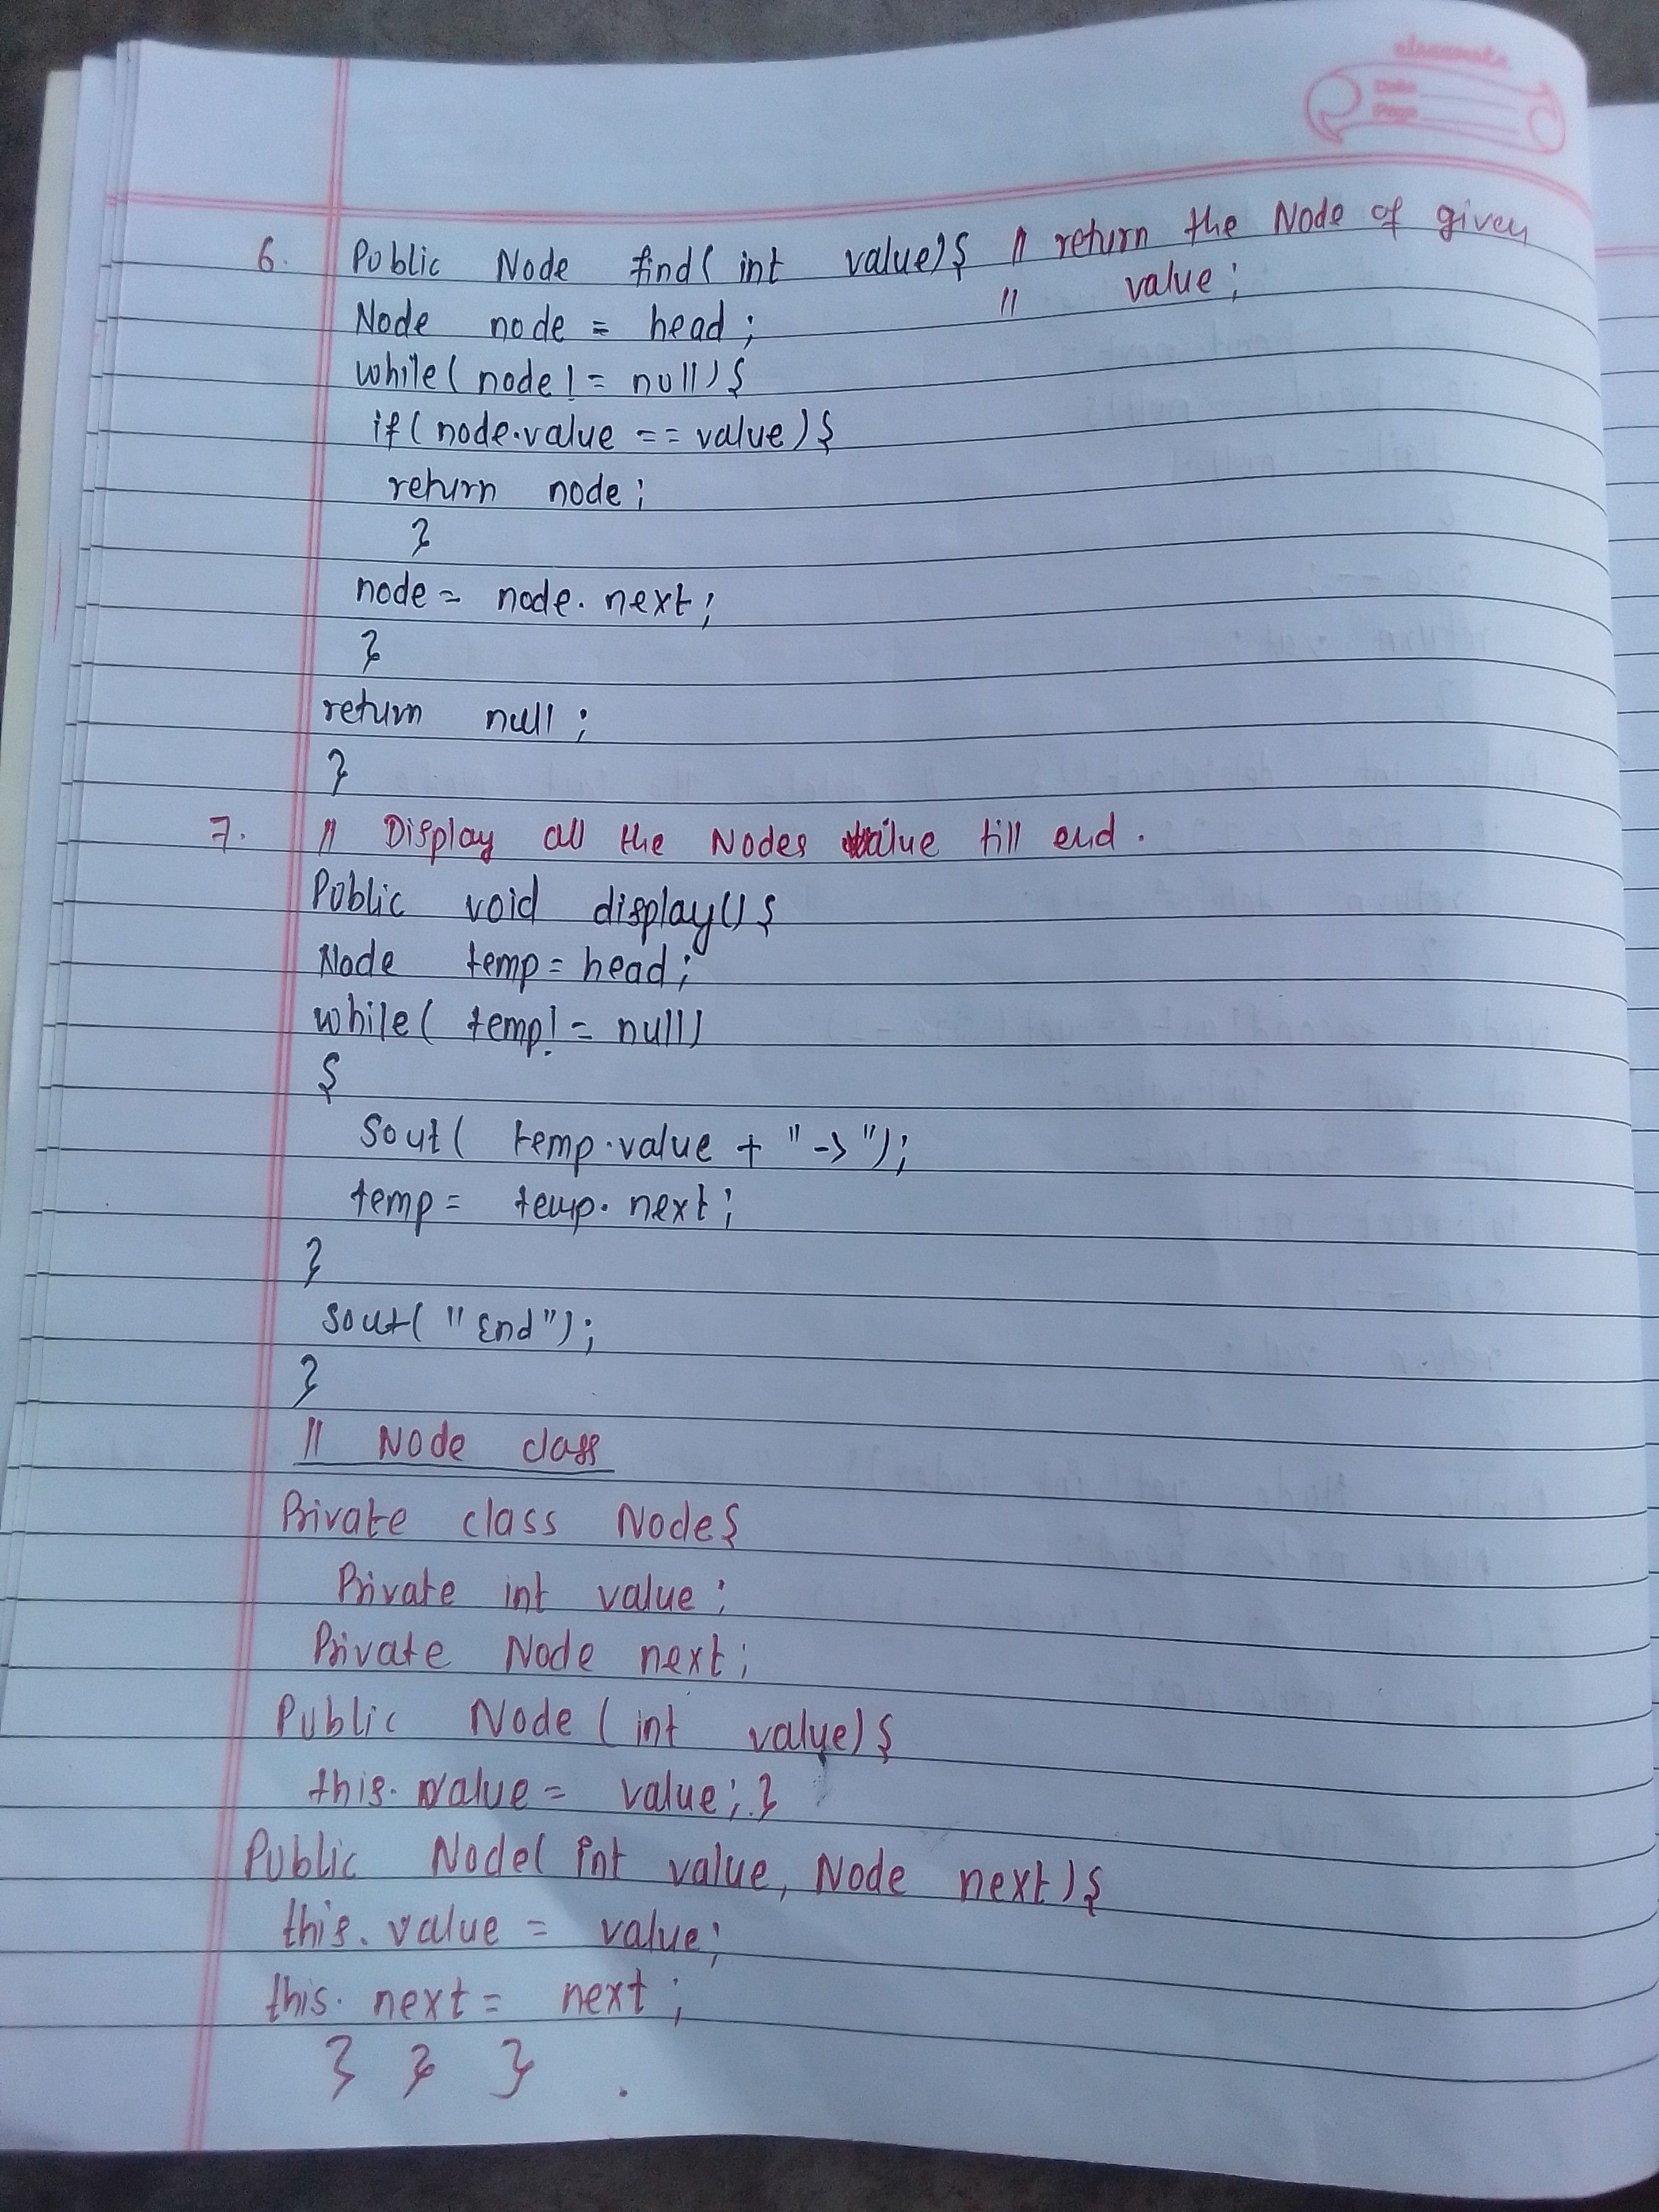 classmate
Date
Page
6. Public Node find( int value){ // return the Node of given
// value;
Node node = head;
while( node != null){
if( node.value == value){
return node;
}
node = node. next;
}
return null;
}
7. // Display all the Nodes value till end.
Public void display(){
Node temp = head;
while( temp != null)
{
Sout( temp.value + "->");
temp = temp. next;
}
Sout( "End");
}
// Node class
Private class Node{
Private int value;
Private Node next;
Public Node (int value){
this. value = value; }
Public Node( int value, Node next){
this. value = value;
this. next = next;
} } } .